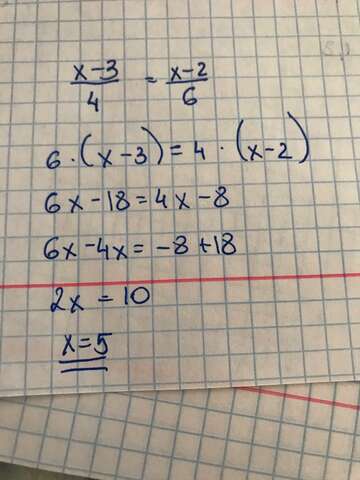 x-3/4 = x-2/6
6·(x-3)=4·(x-2)
6x-18=4x-8
6x-4x=-8+18
2x=10
x=5